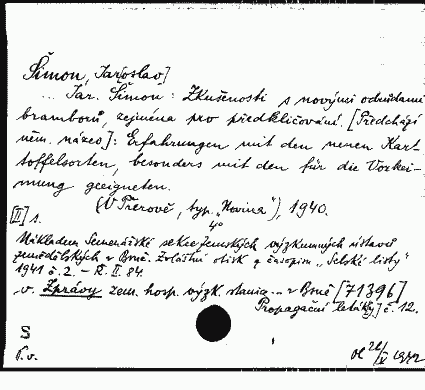 Šimon, Jar[oslav]
... Jar. Šimon: Zkušenosti s novými odrůdami
bramborů, zejména pro předkličování. [Předchází
něm. název]: Erfahrungen mit den neuen Kart
toffelsorten, besonders mit den für die Vorkei-
mung geeigneten.
(V Přerově, typ. „Novina"), 1940.
[II] 1. 4°
Nákladem Semenářské sekce Zemských výzkumných ústavů
zemědělských v Brně. Zvláštní otisk z časopisu „Selské listy"
1941 č. 2. - R. II. 84.
v. Zprávy zem. hosp. výzk. stanic... v Brně [71396]
Propagační letáky] č. 12.
S